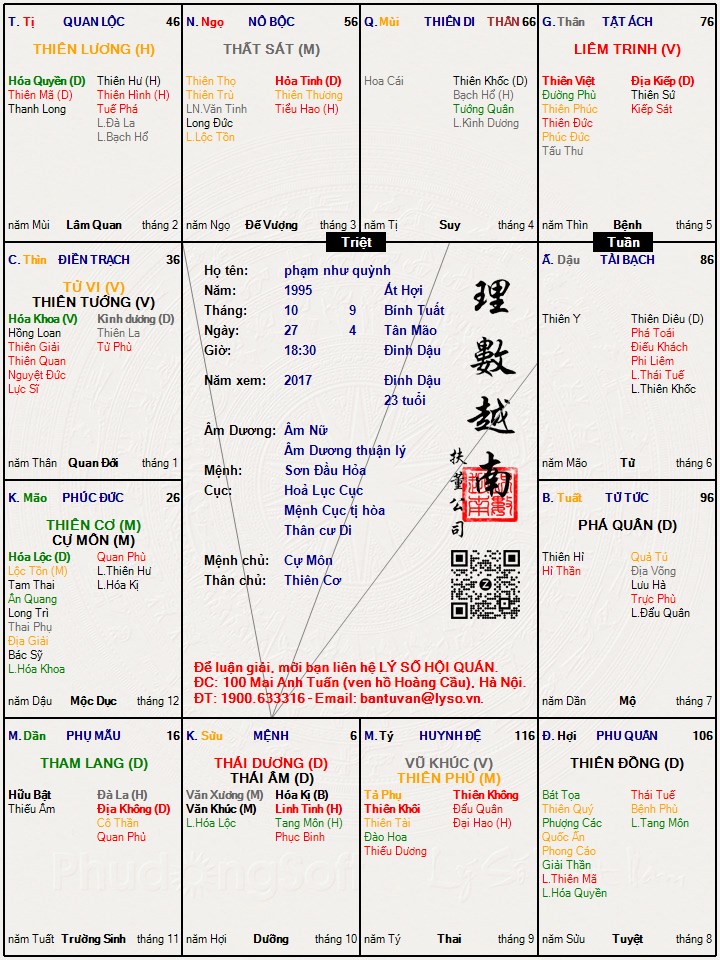 T. Tị QUAN LỘC 46
THIÊN LƯƠNG (H)
Hóa Quyền (D)
Thiên Mã (D)
Thanh Long
Thiên Hư (H)
Thiên Hình (H)
Tuế Phá
L.Đà La
L.Bạch Hổ
năm Mùi Lâm Quan tháng 2
N. Ngọ NÔ BỘC 56
THẤT SÁT (M)
Thiên Thọ
Thiên Trù
LN.Văn Tinh
Long Đức
L.Lộc Tồn
Hỏa Tinh (D)
Thiên Thương
Tiểu Hao (H)
năm Ngọ Đế Vượng tháng 3
Q. Mùi THIÊN DI THÂN 66
Hoa Cái
Thiên Khốc (D)
Bạch Hổ (H)
Tướng Quân
L.Kình Dương
năm Tị Suy tháng 4
G. Thân TẬT ÁCH 76
LIÊM TRINH (V)
Thiên Việt
Đường Phù
Thiên Phúc
Thiên Đức
Phúc Đức
Tấu Thư
Địa Kiếp (D)
Thiên Sứ
Kiếp Sát
năm Thìn Bệnh tháng 5
Triệt
Tuần
C. Thìn ĐIỀN TRẠCH 36
TỬ VI (V)
THIÊN TƯỚNG (V)
Hóa Khoa (V)
Hồng Loan
Thiên Giải
Thiên Quan
Nguyệt Đức
Lực Sĩ
Kình dương (D)
Thiên La
Tử Phù
năm Thân Quan Đới tháng 1
Họ tên: phạm như quỳnh
Năm: 1995 Ất Hợi
Tháng: 10 9 Bính Tuất
Ngày: 27 4 Tân Mão
Giờ: 18:30 Đinh Dậu
Năm xem: 2017 Đinh Dậu
23 tuổi
Âm Dương: Âm Nữ
Âm Dương thuận lý
Mệnh: Sơn Đầu Hỏa
Cục: Hoả Lục Cục
Mệnh Cục tị hòa
Thân cư Di
Mệnh chủ: Cự Môn
Thân chủ: Thiên Cơ
理數越南
扶董公司
Để luận giải, mời bạn liên hệ LÝ SỐ HỘI QUÁN.
ĐC: 100 Mai Anh Tuấn (ven hồ Hoàng Cầu), Hà Nội.
ĐT: 1900.633316 - Email: bantuvan@lyso.vn.
Ấ. Dậu TÀI BẠCH 86
Thiên Y
Thiên Diêu (D)
Phá Toái
Điếu Khách
Phi Liêm
L.Thái Tuế
L.Thiên Khốc
năm Mão Tử tháng 6
K. Mão PHÚC ĐỨC 26
THIÊN CƠ (M)
CỰ MÔN (M)
Hóa Lộc (D)
Lộc Tồn (M)
Tam Thai
Ân Quang
Long Trì
Thai Phụ
Địa Giải
Bác Sỹ
L.Hóa Khoa
Quan Phù
L.Thiên Hư
L.Hóa Kị
năm Dậu Mộc Dục tháng 12
B. Tuất TỬ TỨC 96
PHÁ QUÂN (D)
Thiên Hỉ
Hỉ Thần
Quả Tú
Địa Võng
Lưu Hà
Trực Phù
L.Đẩu Quân
năm Dần Mộ tháng 7
M. Dần PHỤ MẪU 16
THAM LANG (D)
Hữu Bật
Thiếu Âm
Đà La (H)
Địa Không (D)
Cô Thần
Quan Phủ
năm Tuất Trường Sinh tháng 11
K. Sửu MỆNH 6
THÁI DƯƠNG (D)
THÁI ÂM (D)
Văn Xương (M)
Văn Khúc (M)
L.Hóa Lộc
Hóa Kị (B)
Linh Tinh (H)
Tang Môn (H)
Phục Binh
năm Hợi Dưỡng tháng 10
M. Tý HUYNH ĐỆ 116
VŨ KHÚC (V)
THIÊN PHỦ (M)
Tả Phụ
Thiên Khôi
Thiên Tài
Đào Hoa
Thiếu Dương
Thiên Không
Đẩu Quân
Đại Hao (H)
năm Tý Thai tháng 9
Đ. Hợi PHU QUÂN 106
THIÊN ĐỒNG (D)
Bát Tọa
Thiên Quý
Phượng Các
Quốc Ấn
Phong Cáo
Giải Thần
L.Thiên Mã
L.Hóa Quyền
Thái Tuế
Bệnh Phù
L.Tang Môn
năm Sửu Tuyệt tháng 8